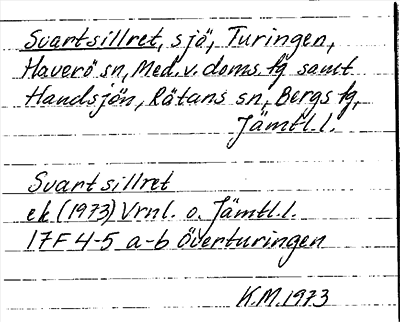 Svartsillret, sjö, Turingen,
Haverö sn, Med. v. doms. fg samt
Handsjön, Rätans sn, Bergs fg,
Jämtl. l.
Svartsillret
ek (1973) Vrnl. o. Jämtl. l.
17F 4-5 a-b Överturingen
K.M. 1973